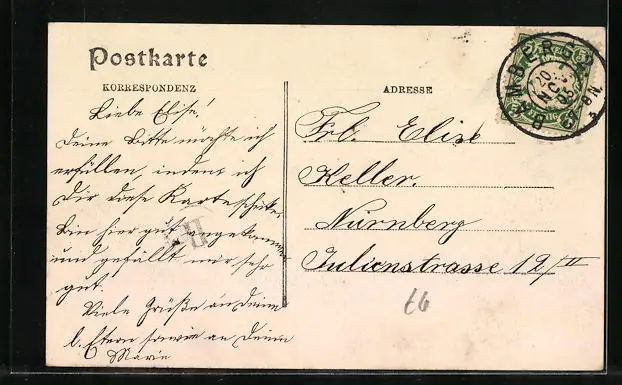 Postkarte
KORRESPONDENZ
ADRESSE
Liebe Elise!
Deine Bitte möchte ich
erfüllen, indem ich
Dir diese Karte schicke.
Bin hier gut angekommen
und gefällt mir sehr
gut.
Viele Grüße an Deine
l. Eltern sowie an Deine
Marie
Frl. Elise
Keller.
Nürnberg
Julienstrasse 12/II
BAMBERG